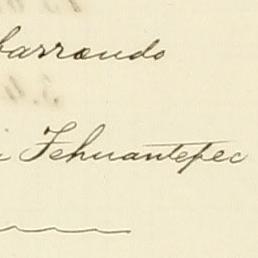 barrondo
Tehuantepec